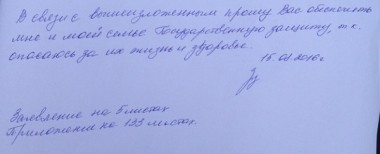 В связи с вышеизложенным прошу Вас обеспечить
мне и моей семье Государственную защиту, т.к.
опасаюсь за их жизнь и здоровье.
Заявление на 5 листах.
Приложения на 193 листах.